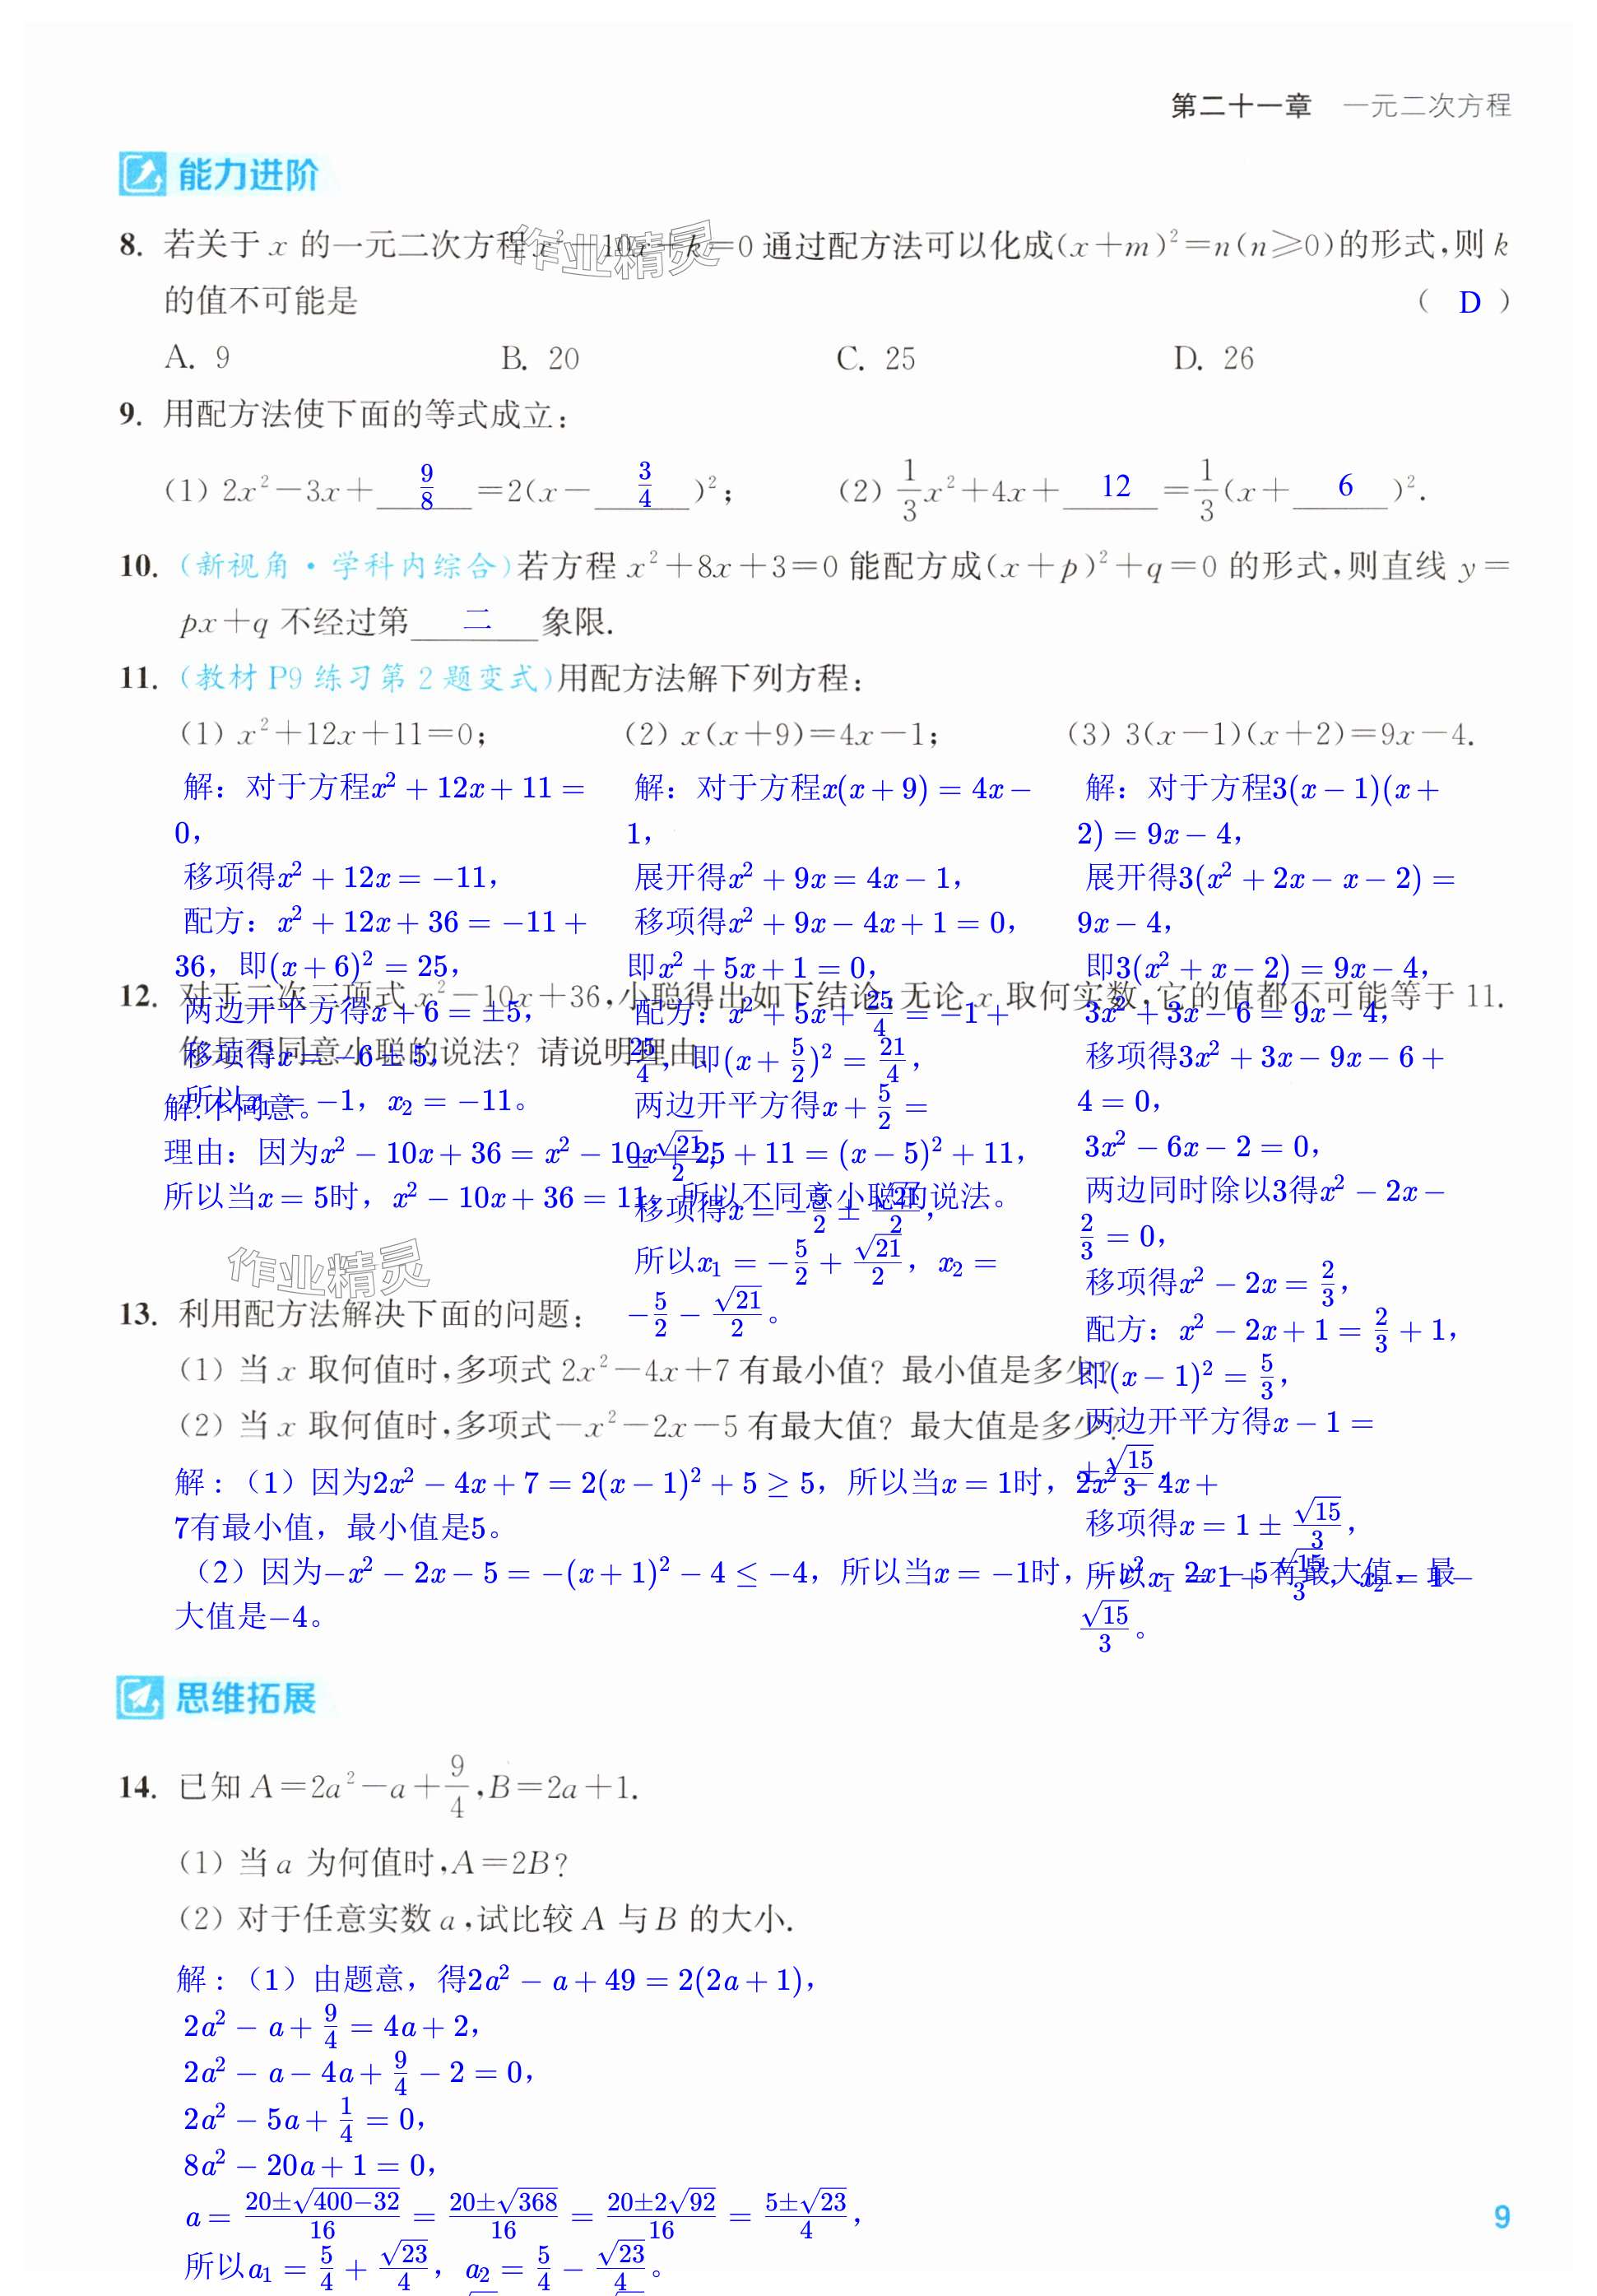 第二十一章 一元二次方程
能力进阶
8. 若关于 x 的一元二次方程x²-10x+k=0 通过配方法可以化成(x+m)²=n(n≥0)的形式,则 k
的值不可能是 ( D )
A. 9 B. 20 C. 25 D. 26
9. 用配方法使下面的等式成立:
(1) 2x²-3x+ 9/8 =2(x- 3/4 )²; (2) 1/3x²+4x+ 12 =1/3(x+ 6 )².
10. (新视角·学科内综合)若方程 x²+8x+3=0 能配方成(x+p)²+q=0 的形式,则直线 y=
px+q 不经过第 二 象限.
11. (教材 P9 练习第 2 题变式)用配方法解下列方程:
(1) x²+12x+11=0; (2) x(x+9)=4x-1; (3) 3(x-1)(x+2)=9x-4.
解:对于方程x²+12x+11=
0,
移项得x²+12x=-11,
配方:x²+12x+36=-11+
36,即(x+6)²=25,
两边开平方得x+6=±5,
移项得x=-6±5,
所以x₁=-1,x₂=-11。
解:对于方程x(x+9)=4x-
1,
展开得x²+9x=4x-1,
移项得x²+9x-4x+1=0,
即x²+5x+1=0,
配方:x²+5x+25/4=-1+
25/4,即(x+5/2)²=21/4,
两边开平方得x+5/2=
±√21/2,
移项得x=-5/2±√21/2,
所以x₁=-5/2+√21/2,x₂=
-5/2-√21/2。
解:对于方程3(x-1)(x+
2)=9x-4,
展开得3(x²+2x-x-2)=
9x-4,
即3(x²+x-2)=9x-4,
3x²+3x-6=9x-4,
移项得3x²+3x-9x-6+
4=0,
3x²-6x-2=0,
两边同时除以3得x²-2x-
2/3=0,
移项得x²-2x=2/3,
配方:x²-2x+1=2/3+1,
即(x-1)²=5/3,
两边开平方得x-1=
±√15/3,
移项得x=1±√15/3,
所以x₁=1+√15/3,x₂=1-
√15/3。
12. 对于二次三项式 x²-10x+36,小聪得出如下结论:无论 x 取何实数,它的值都不可能等于 11.
你是否同意小聪的说法?请说明理由.
解:不同意。
理由:因为x²-10x+36=x²-10x+25+11=(x-5)²+11,
所以当x=5时,x²-10x+36=11,所以不同意小聪的说法。
作业精灵
13. 利用配方法解决下面的问题:
(1) 当 x 取何值时,多项式 2x²-4x+7 有最小值?最小值是多少?
(2) 当 x 取何值时,多项式-x²-2x-5 有最大值?最大值是多少?
解:(1)因为2x²-4x+7=2(x-1)²+5≥5,所以当x=1时,2x²-4x+
7有最小值,最小值是5。
(2)因为-x²-2x-5=-(x+1)²-4≤-4,所以当x=-1时,-x²-2x-5有最大值,最
大值是-4。
思维拓展
14. 已知 A=2a²-a+9/4,B=2a+1.
(1) 当 a 为何值时,A=2B?
(2) 对于任意实数 a,试比较 A 与 B 的大小.
解:(1)由题意,得2a²-a+49=2(2a+1),
2a²-a+9/4=4a+2,
2a²-a-4a+9/4-2=0,
2a²-5a+1/4=0,
8a²-20a+1=0,
a=(20±√(400-32))/16=(20±√368)/16=(20±2√92)/16=(5±√23)/4,
所以a₁=5/4+√23/4,a₂=5/4-√23/4。
9